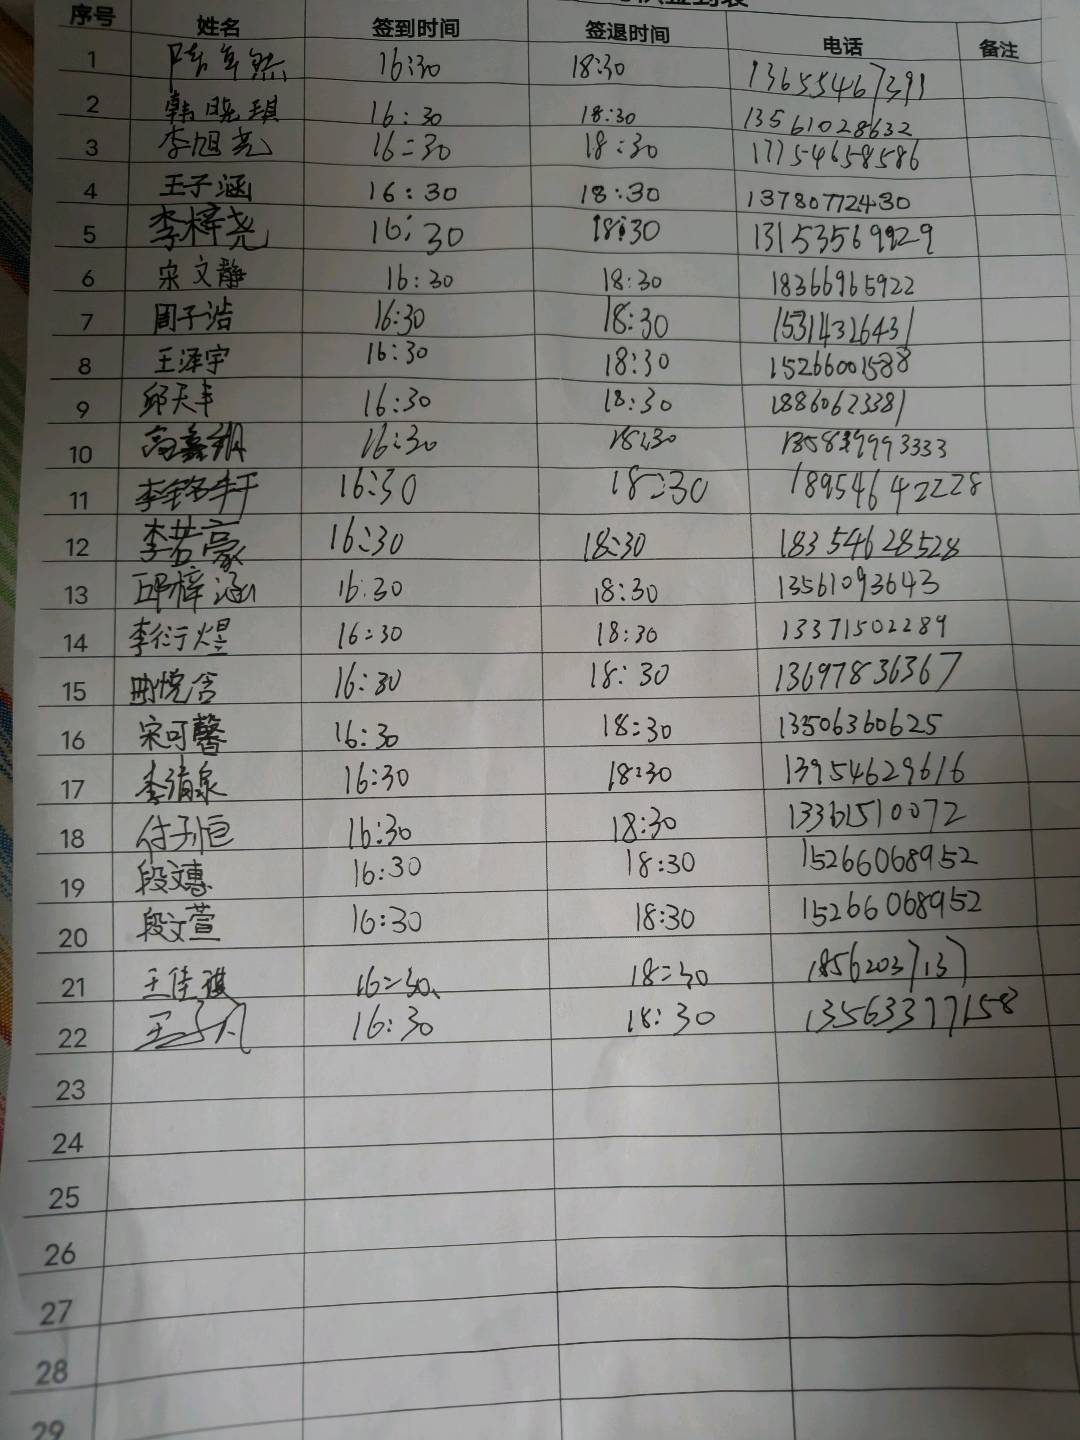 序号 姓名 签到时间 签退时间 电话 备注
1 陈 16:30 18:30 13655467391
2 韩晓琪 16:30 18:30 13561028632
3 李旭尧 16:30 18:30 17754658586
4 王子涵 16:30 18:30 13780772430
5 李梓尧 16:30 18:30 13153569929
6 宋文静 16:30 18:30 18366965922
7 周子浩 16:30 18:30 15314326431
8 王泽宇 16:30 18:30 15266001588
9 邱天丰 16:30 18:30 18860623381
10 16:30 18:30
11 李 16:30 18:30 18954642228
12 李若豪 16:30 18:30 18354628528
13 邱梓涵 16:30 18:30 13561093643
14 李衍煜 16:30 18:30 13371502289
15 悦含 16:30 18:30 13697836367
16 宋可馨 16:30 18:30 13506360625
17 李清泉 16:30 18:30 13954629616
18 付子恒 16:30 18:30 13361510072
19 段文 16:30 18:30 15266068952
20 段文萱 16:30 18:30 15266068952
21 王佳祺 16:30 18:30 18562037137
22 王子凡 16:30 18:30 13563377158
23
24
25
26
27
28
29